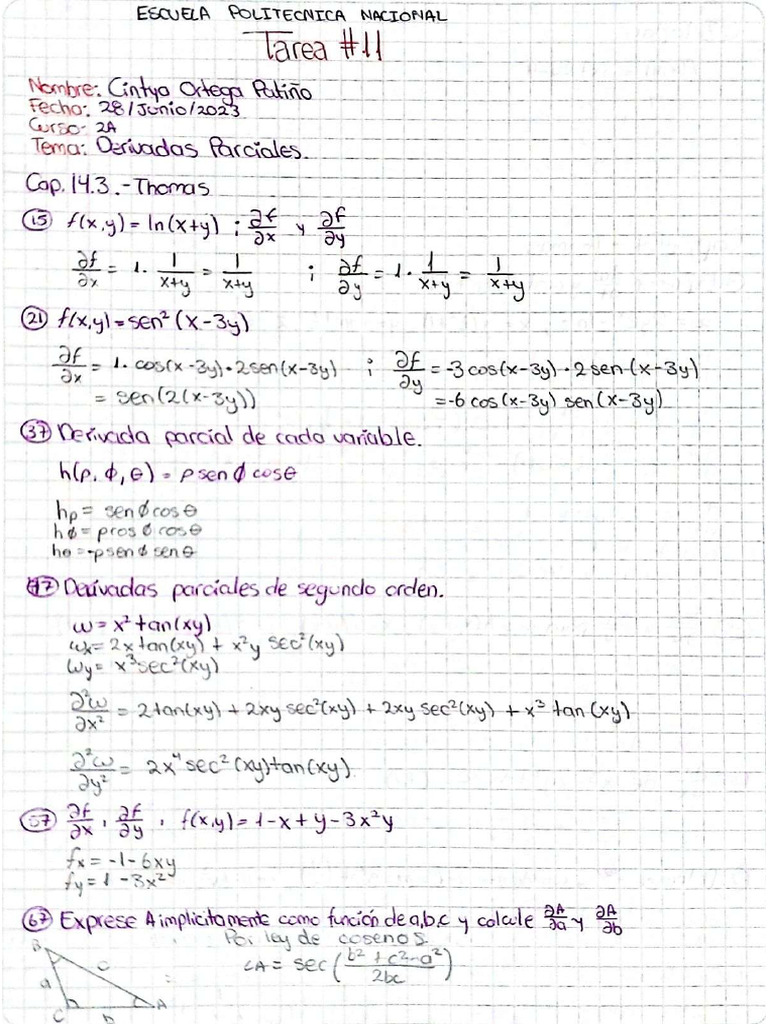 ESCUELA POLITECNICA NACIONAL
Tarea #11
Nombre: Cintya Ortega Patiño
Fecha: 28/Junio/2023
Curso: 2A
Tema: Derivadas Parciales.
Cap. 14.3.-Thomas
(15) f(x,y) = ln(x+y) ; ∂f/∂x y ∂f/∂y
∂f/∂x = 1 · 1/(x+y) = 1/(x+y) ; ∂f/∂y = 1 · 1/(x+y) = 1/(x+y)
(21) f(x,y) = sen² (x-3y)
∂f/∂x = 1 · cos(x-3y) · 2sen(x-3y) ; ∂f/∂y = -3cos(x-3y) · 2sen(x-3y)
= sen(2(x-3y)) = -6 cos(x-3y) sen(x-3y)
(37) Derivada parcial de cada variable.
h(ρ, ϕ, θ) = ρ sen ϕ cos θ
hρ = sen ϕ cos θ
hϕ = ρcos ϕ cos θ
hθ = -ρ sen ϕ sen θ
(47) Derivadas parciales de segundo orden.
ω = x² tan(xy)
ωx = 2x tan(xy) + x²y sec²(xy)
ωy = x³ sec²(xy)
∂²ω/∂x² = 2tan(xy) + 2xy sec²(xy) + 2xy sec²(xy) + x³ tan(xy)
∂²ω/∂y² = 2x⁴ sec²(xy)tan(xy)
(57) ∂f/∂x , ∂f/∂y , f(x,y) = 1-x+y-3x²y
fx = -1-6xy
fy = 1-3x²
(67) Exprese A implicitamente como función de a,b,c y calcule ∂A/∂a y ∂A/∂b
Por ley de cosenos.
B
c
∠A = sec((b²+c²-a²)/2bc)
a
C b A